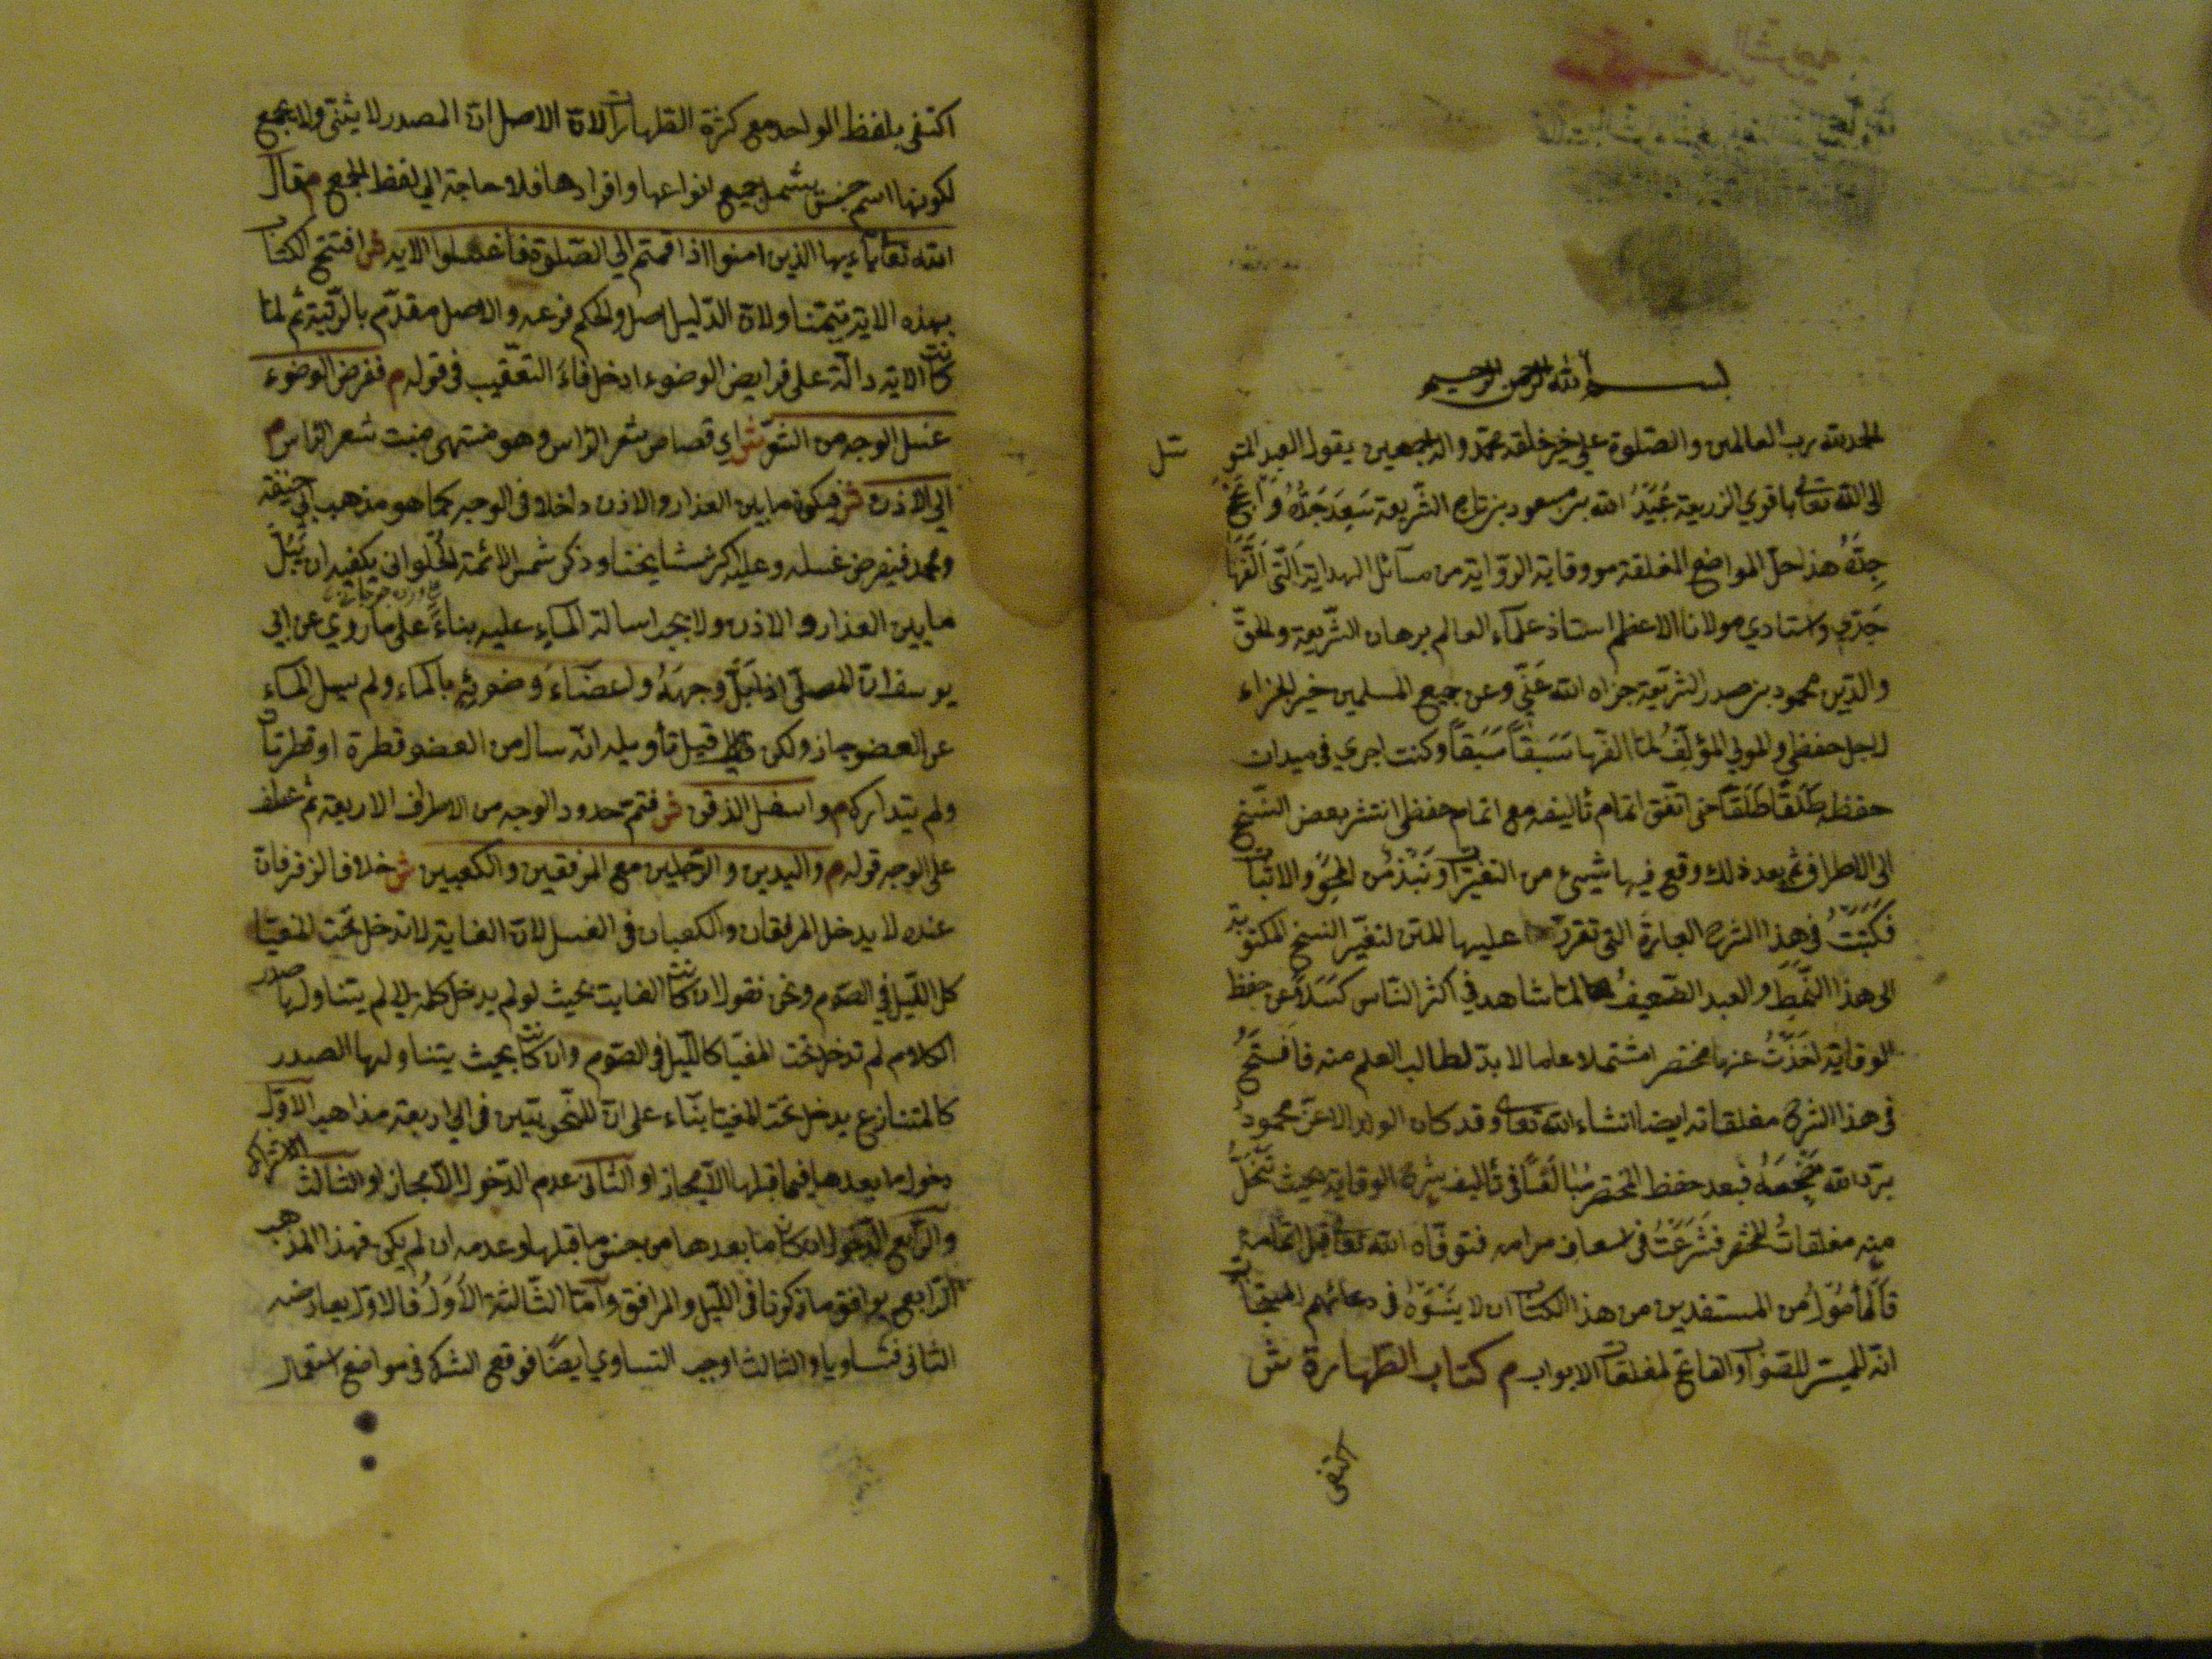 بسم الله الرحمن الرحيم
الحمد لله رب العالمين والصلوة على خير خلقه محمد واله اجمعين يقول العبد المتو
سل
الى الله تعالى باقوي الذريعة عُبَيْدُ الله بن مسعود بن تاج الشريعة سَعِدَ جَدُّهُ وَانجح
جِدُّهُ هذا حل المواضع المغلقة من وقاية الرواية من مسائل الهداية التى الّفها
جَدّي واستادي مولانا الاعظم استاذ علماء العالم برهان الشريعة والحق
والدين محمود بن صدر الشريعة جزاه الله عَنّي وعن جميع المسلمين خير الجزاء
لاجل حفظي والمولى المؤلِّفُ لما الفها سَبَقاً سَبَقاً وكنت اجري في ميدان
حفظه طَلَقًا طَلَقًا حتى اتّفق اتمام تاليفه مع اتمام حفظي انتشر بعض النسخ
الى الاطراف ثم بعد ذلك وقع فيها شيئ من التغيرات ونَبْذ من المحو والاثبات
فكَتَبْتُ في هذا الشرح العبارة التى تقرر عليها المتن لتغيّر النسخ المكتوبة
الى هذا النَّمَط والعبد الضعيفُ لما شاهد في اكثر الناس كَسَلاً عن حفظ
الوقاية اتخَذْتُ عنها مختصرا مشتملا على ما لا بد لطالب العلم منه فافتتحُ
فى هذا الشرح مغلقاته ايضا انشاء الله تعالى وقد كان الولد الاعز محمود
برّد الله مَضْجَعَهُ بعد حفظ المختصر مُبالغًا فى تأليف شرح الوقاية بحيث تنحلُّ
منه مغلقاتُ المختصر فشَرَعْتُ فى اسعاف مرامه فتوفّاه الله تعالى قبل اتمامه
فالمأمُولُ من المستفدين من هذا الكتاب ان لا يَنْسَوْهُ فى دعائهم المستجاب
انّه الميسّر للصّواب والفاتح لمغلقات الابواب م كتاب الطهارة ش
اكتفى
اكتفى بلفظ الواحد مع كثرة الطهارات لانّ الاصل انّ المصدر لا يثنّى ولا يجمع
لكونها اسم جنس يشمل جميع انواعها وافرادها فلا حاجة الى لفظ الجمع م قال
الله تعالى يآءيها الذين امنوا اذا قمتم الى الصلوة فاغسلوا الاية ش افتتح الكتاب
بهذه الاية تيمّنا ولانّ الدّليل اصل والحكم فرعه والاصل مقدّم بالرّتبة ثم لما
كانت الاية دالّة على فرايض الوضوء ادخل فاءَ التعقّيب فى قوله م ففرض الوضوء
غسل الوجه من الشّعر ش اي قصاص شعر الرّاس وهو منتهى منبت شعر الرّاس م
الى الاذن ش فيكون ما بين العذار والاذن داخلا فى الوجه كما هو مذهب ابي حنيفة
ومحمد فيفرض غسله وعليه اكثر مشايخنا وذكر شمس الائمة الحلواني يكفيه ان يَبُلّ
ما بين العذار والاذن ولا يجب اسالة الماء عليه بناءً على ما روي عن ابي
يوسف انّ المصلّى اذا بَلَّ وجهَهُ واعضاءَ وضوئه بالماء ولم يسل الماء
عن العضو جاز ولكن قيل تأويله انّه سال من العضو قطرة او قطرتان
ولم يتدارك م واسفل الذقن ش فتمّ حدود الوجه من الاطراف الاربعة ثم عطف
على الوجه قوله م واليدين والرّجلين مع المرفقين والكعبين ش خلافا لزفر فانّ
عنده لا يدخل المرفقان والكعبان فى الغسل لانّ الغاية لا تدخل تحت المغيّا
كالليل في الصّوم ونحن نقول ان كانت الغاية بحيث لو لم يدخل كلمة الى لم يتناولها صدر
الكلام لم تدخل تحت المغيّا كالليل فى الصّوم وان كانت بحيث يتناولها الصدر
كالمتنازع يدخل تحت المغيّا بنّاء على انّ للنّحويين فى الى اربعة مذاهب الاوّل
دخول ما بعدها فيما قبلها الّا مجازا والثّانى عدم الدّخول الّا مجازا والثالث الاشتراك
والرّابع الدّخول ان كان ما بعدها من جنس ما قبلها وعدمه ان لم يكن فهذا المذهب
الرّابع يوافق ما ذكرنا فى اللّيل والمرافق وأمّا الثّالثة الأُوَلُ فالاوّل يعارضه
الثانى فتساويا والثالث اوجب التساوي ايضًا فوقع الشك في مواضع استعمال